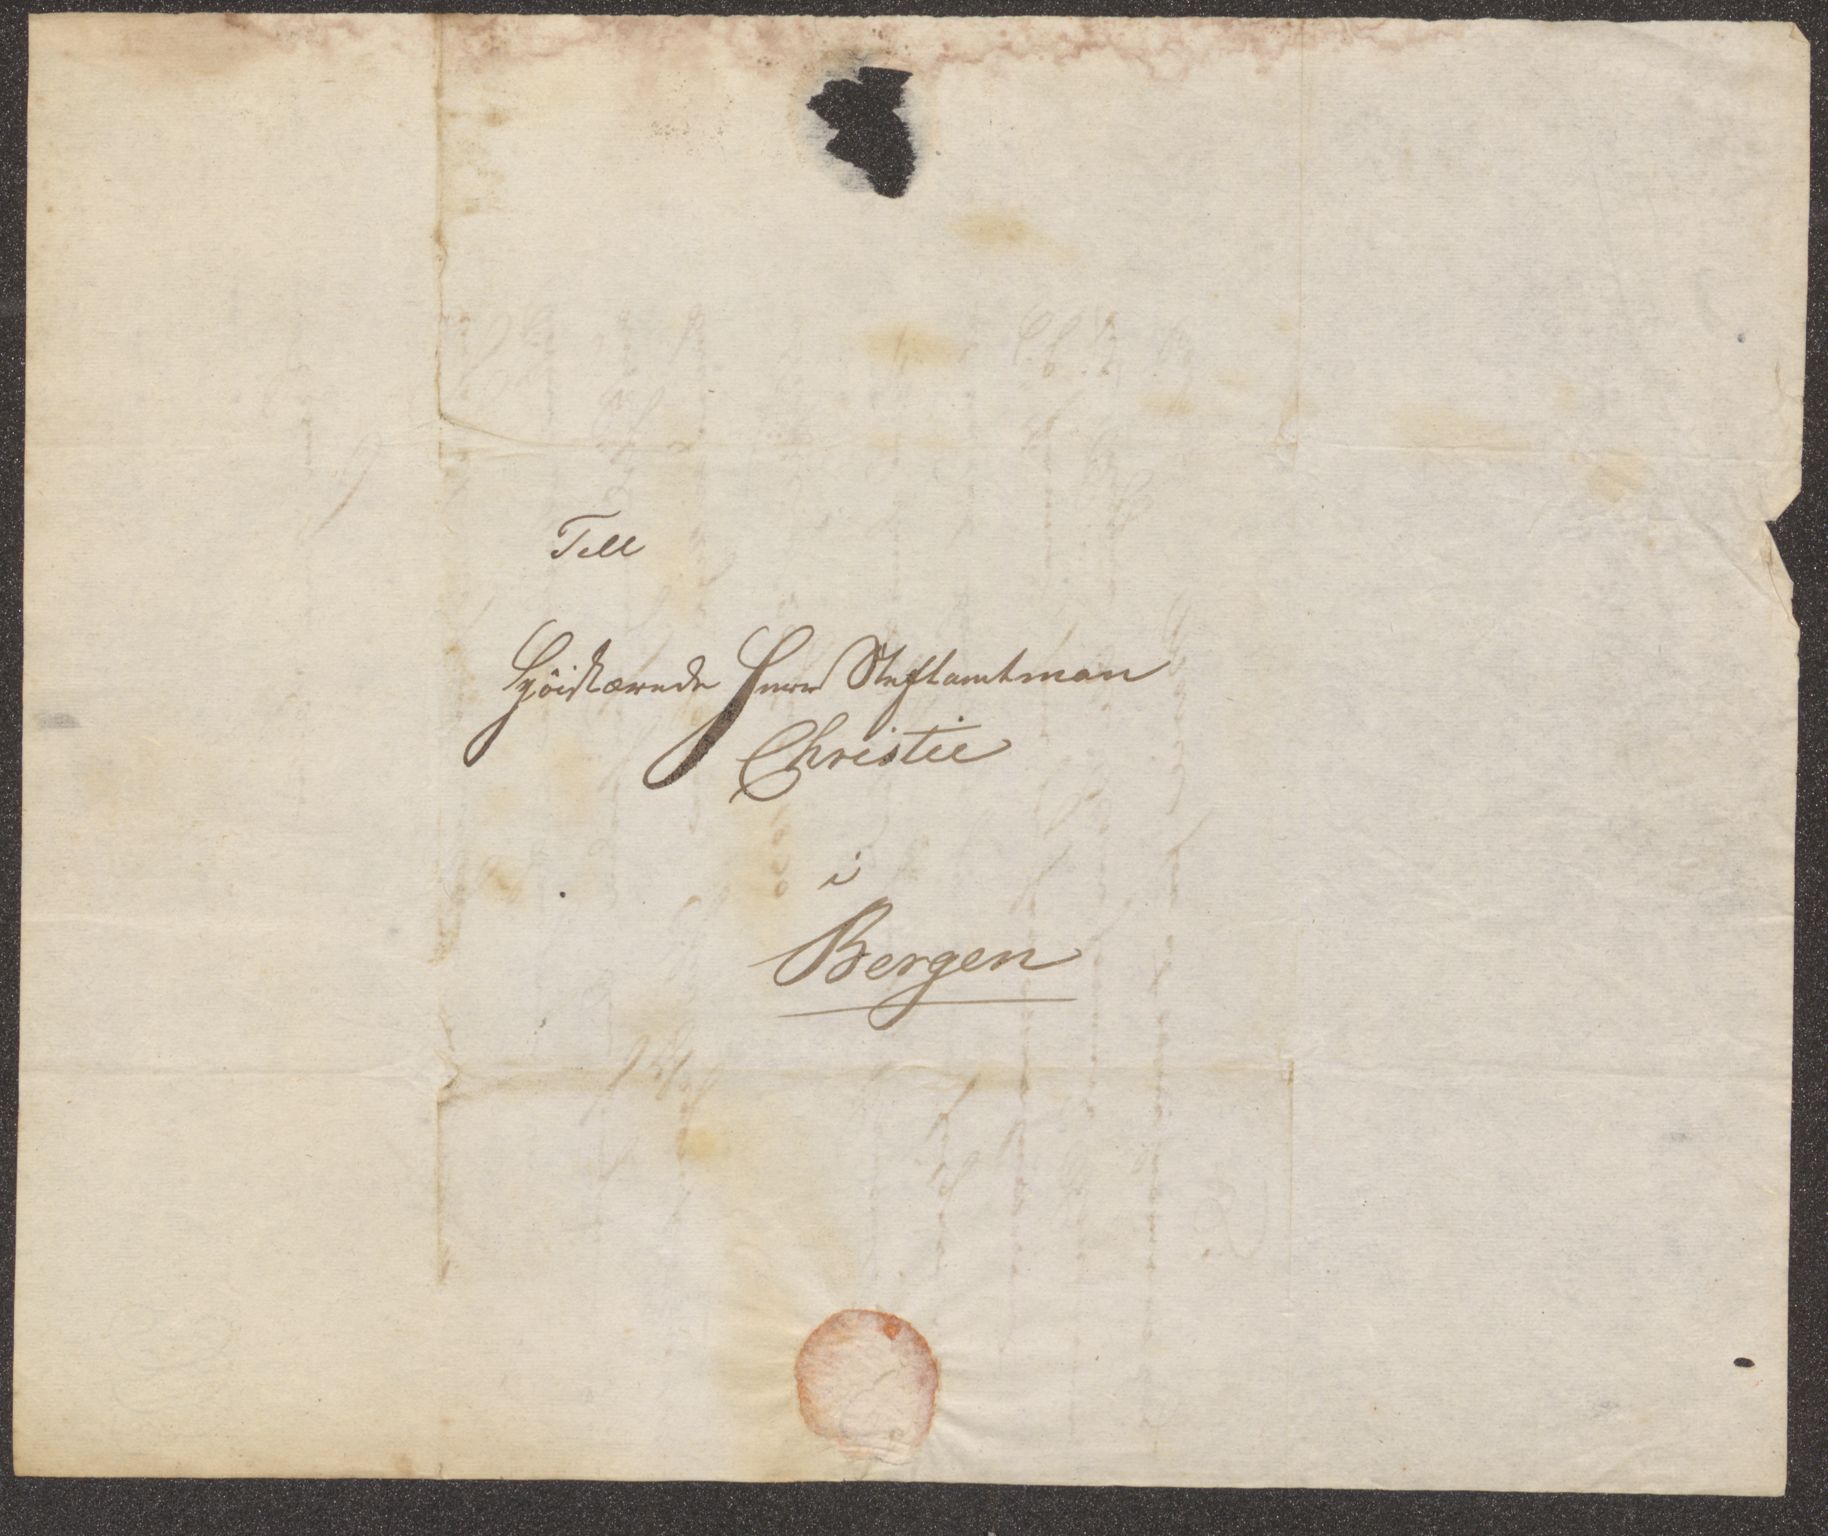 Till
Høistærede Herr Stiftamtman
Christie
i
Bergen